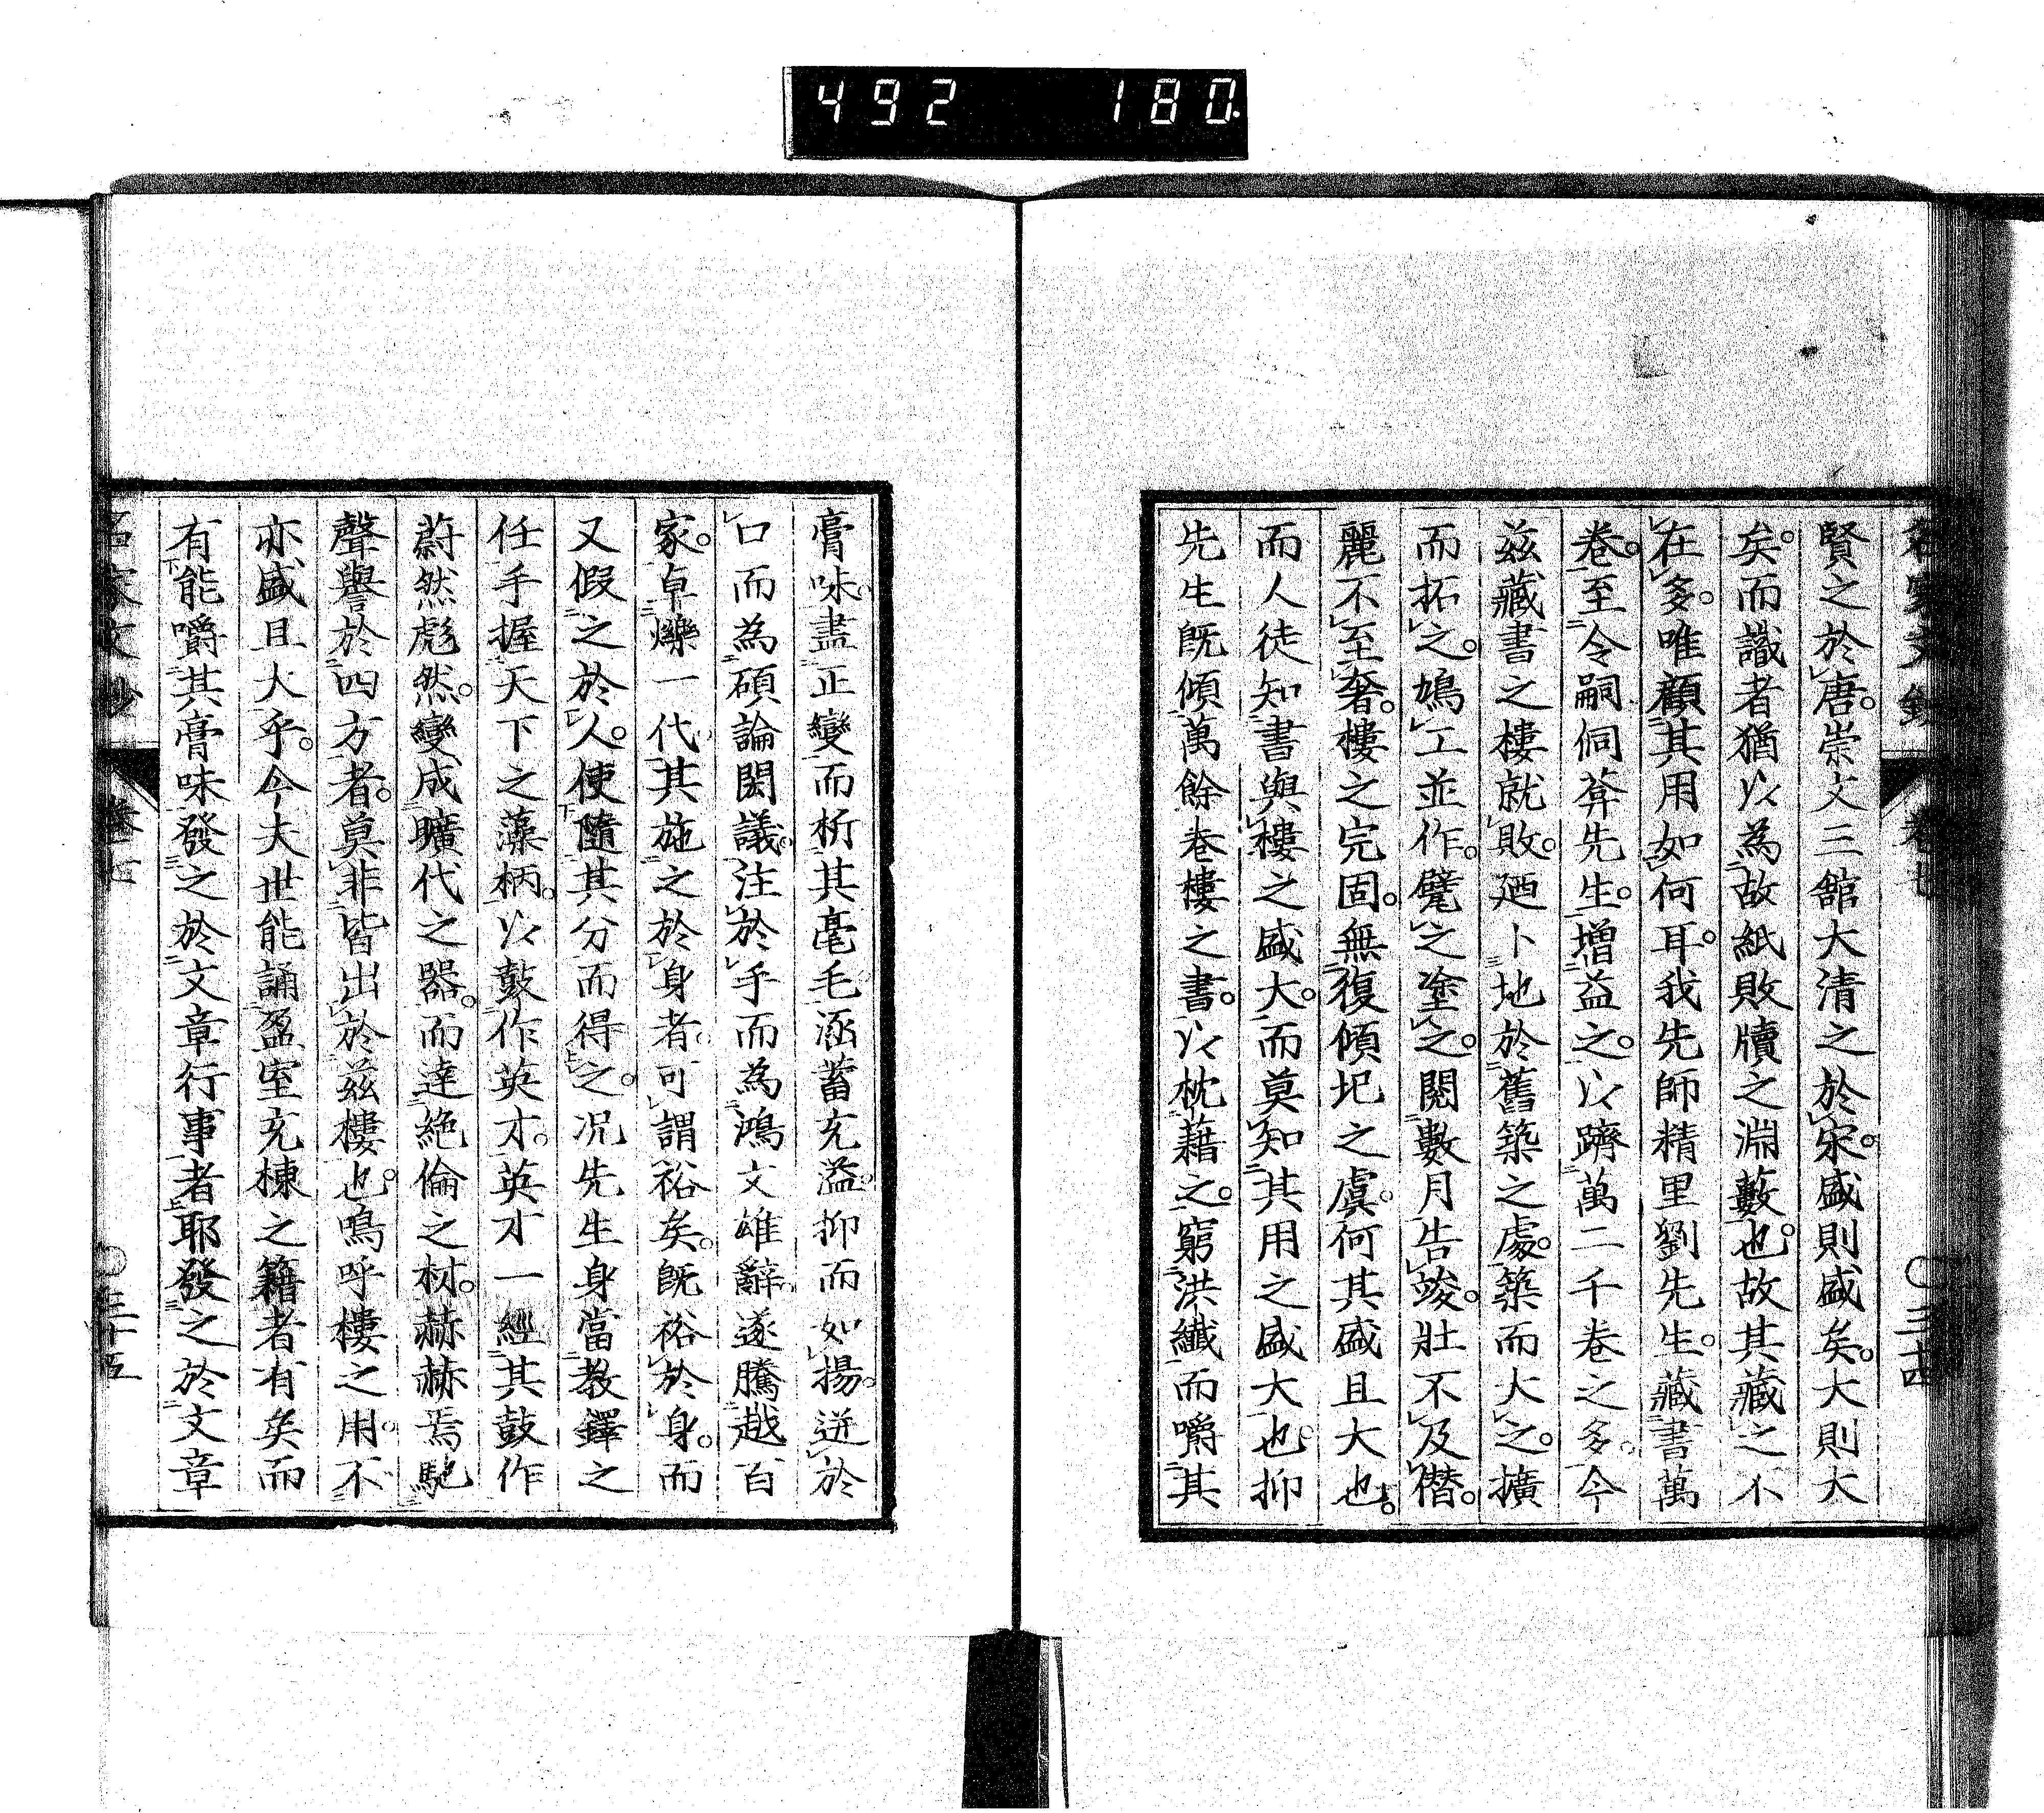 492 180
名家文鈔 卷七 〇三十四
賢之於唐。崇文三館大清之於宋。盛則盛矣。大則大
矣。而識者猶以為故紙敗牘之淵藪也。故其藏之不
在多。唯顧其用如何耳。我先師精里劉先生。藏書萬
卷。至令嗣侗葊先生。增益之。以躋萬二千卷之多。今
茲藏書之樓就敗。廼卜地於舊築之處。築而大之。擴
而拓之。鳩工並作。甓之塗之。閱數月告竣。壯不及僭。
麗不至奢。樓之完固。無復傾圮之虞。何其盛且大也。
而人徒知書與樓之盛大。而莫知其用之盛大也。抑
先生既傾萬餘卷樓之書。以枕藉之。窮洪纖而嚼其
膏味。盡正變而析其毫毛。涵蓄充溢。抑而如揚。迸於
口而為碩論閎議。注於手而為鴻文雄辭。遂騰越百
家。卓爍一代。其施之於身者。可謂裕矣。既裕於身。而
又假之於人。使隨其分而得之。况先生身當教鐸之
任。手握天下之藻柄。以鼓作英才。英才一經其鼓作
蔚然彪然。變成曠代之器。而達絶倫之材。赫赫焉馳
聲譽於四方者。莫非皆出於茲樓也。嗚呼樓之用。不
亦盛且大乎。今夫世能誦盈室充棟之籍者有矣。而
有能嚼其膏味發之於文章行事者耶。發之於文章
名家文鈔 卷七 〇三十五